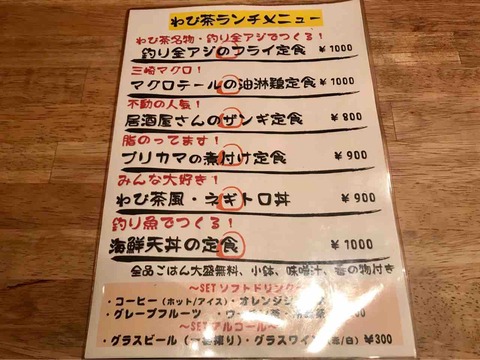 わび茶ランチメニュー
わび茶名物・釣り金アジでつくる！
釣り金アジのフライ定食 ¥1000
三崎マグロ！
マグロテールの油淋鶏定食 ¥1000
不動の人気！
居酒屋さんのザンギ定食 ¥800
脂のってます！
ブリカマの煮付け定食 ¥900
みんな大好き！
わび茶風・ネギトロ丼 ¥900
釣り魚でつくる！
海鮮天丼の定食 ¥1000
全品ごはん大盛無料、小鉢、味噌汁、香の物付き
～SETソフトドリンク～
・コーヒー（ホット/アイス）・オレンジジュース
・グレープフルーツ ・ウーロン茶・
～SETアルコール～
・グラスビール（一番搾り）・グラスワイン（赤/白）各¥300